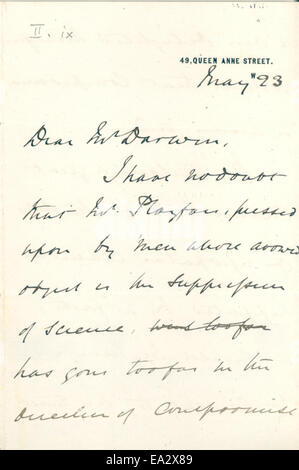 II. ix
49, QUEEN ANNE STREET.
W
May 23
Dear Mr Darwin,
I have no doubt
that Mr. Playfair, pressed
upon by men whose avowed
object is the suppression
of science, went too far
has gone too far in the
direction of Compromise
alamy stock photo
EA2X89
www.alamy.com